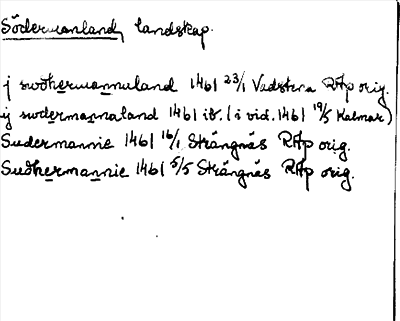 Södermanland, landskap.
j swdhermannaland 1461 23/1 Vadstena RAp orig.
ij swdermannaland 1461 ib. (i vid. 1461 19/5 Kalmar)
Sudermannie 1461 16/1 Strängnäs RAp orig.
Sudhermannie 1461 5/5 Strängnäs RAp orig.